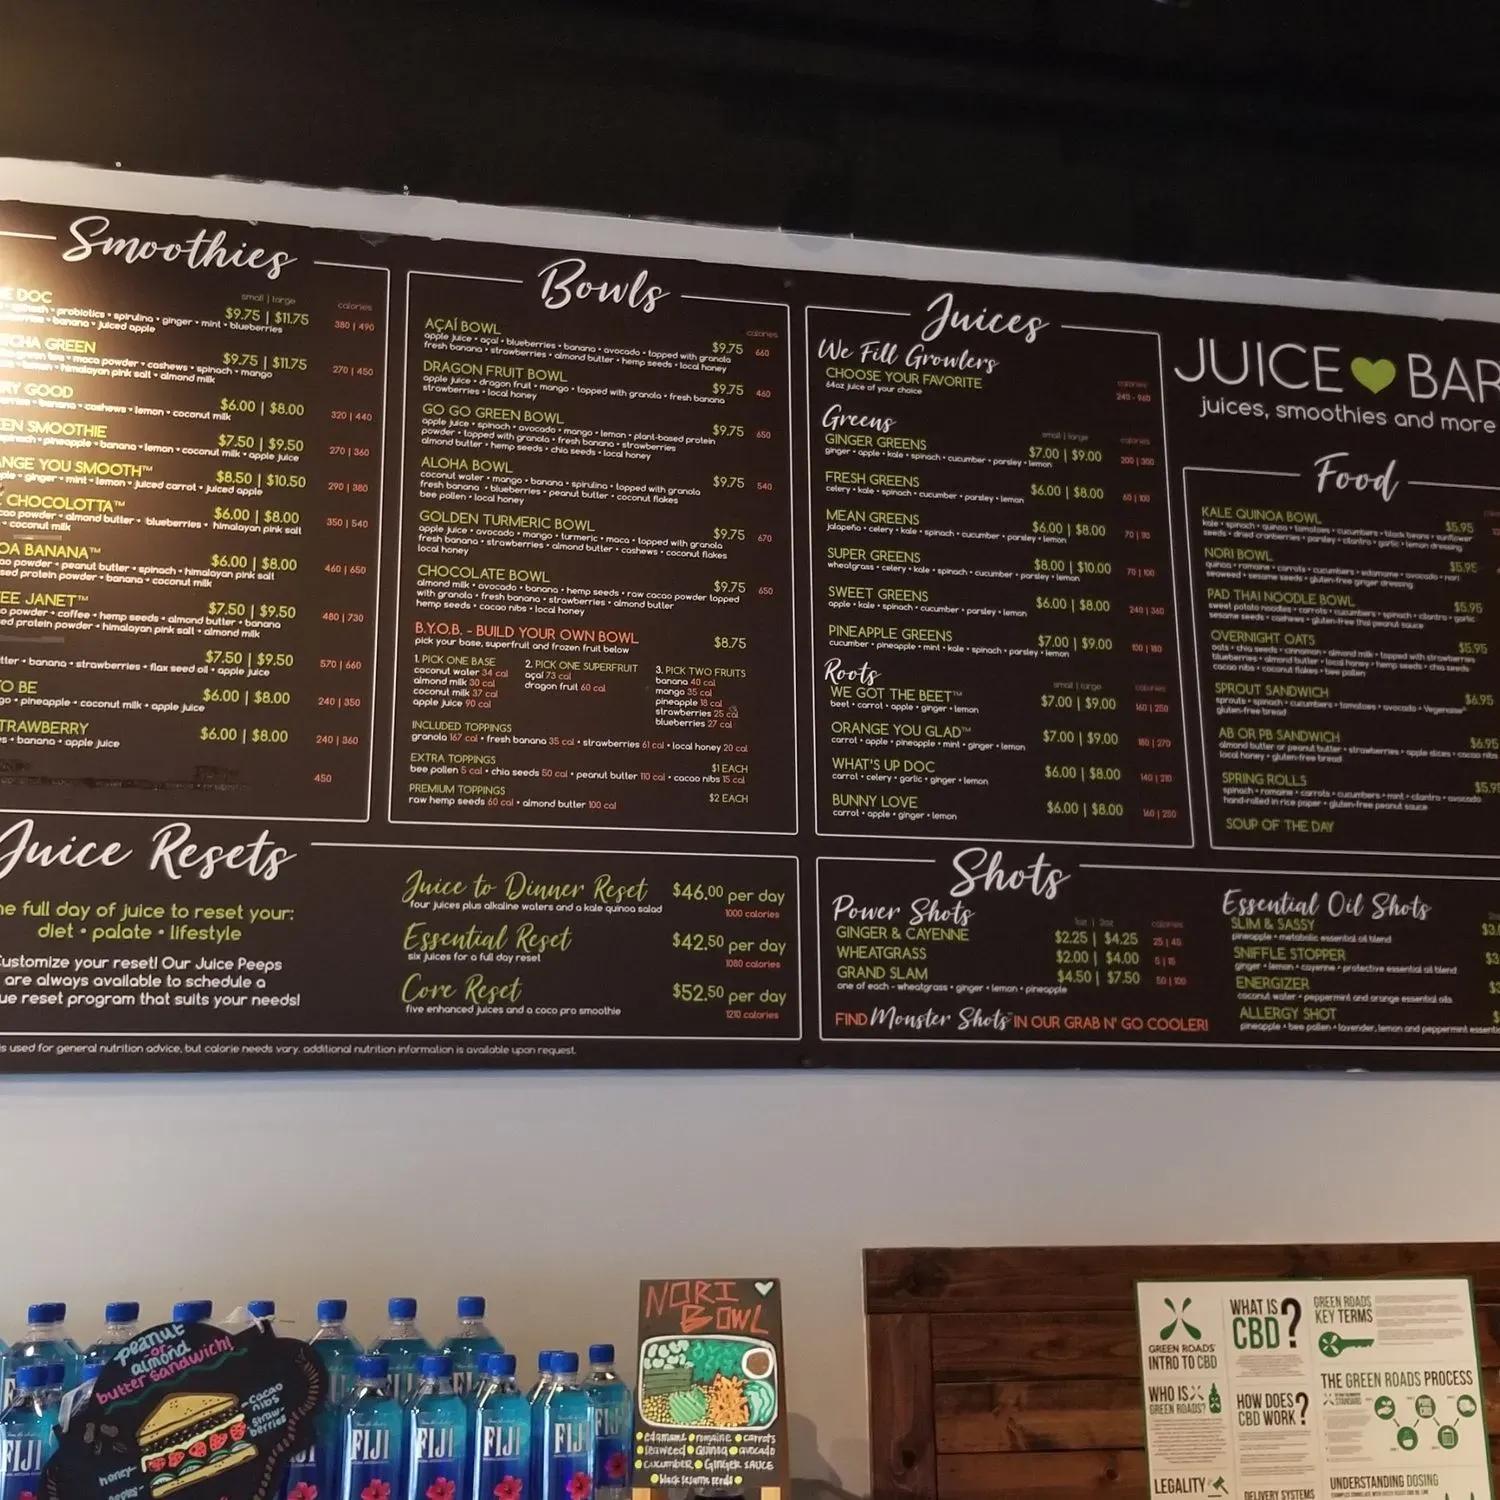 Smoothies
small | large
calories
DOC
$9.75 | $11.75
380 | 490
spinach • probiotics • spirulina • ginger • mint • blueberries
• banana • juiced apple
GREEN
$9.75 | $11.75
270 | 450
green tea • maca powder • cashews • spinach • mango
• lemon • himalayan pink salt • almond milk
GOOD
$6.00 | $8.00
320 | 440
• banana • cashews • lemon • coconut milk
SMOOTHIE
$7.50 | $9.50
270 | 360
spinach • pineapple • banana • lemon • coconut milk • apple juice
YOU SMOOTH™
$8.50 | $10.50
290 | 380
• ginger • mint • lemon • juiced carrot • juiced apple
CHOCOLOTTA™
$6.00 | $8.00
350 | 540
powder • almond butter • blueberries • himalayan pink salt
• coconut milk
BANANA™
$6.00 | $8.00
460 | 650
powder • peanut butter • spinach • himalayan pink salt
protein powder • banana • coconut milk
JANET™
$7.50 | $9.50
480 | 730
powder • coffee • hemp seeds • almond butter • banana
protein powder • himalayan pink salt • almond milk
$7.50 | $9.50
570 | 660
• banana • strawberries • flax seed oil • apple juice
TO BE
$6.00 | $8.00
240 | 350
• pineapple • coconut milk • apple juice
$6.00 | $8.00
240 | 360
• banana • apple juice
450
Bowls
calories
AÇAÍ BOWL
$9.75 660
apple juice • açaí • blueberries • banana • avocado • topped with granola
fresh banana • strawberries • almond butter • hemp seeds • local honey
DRAGON FRUIT BOWL
$9.75 460
apple juice • dragon fruit • mango • topped with granola • fresh banana
strawberries • local honey
GO GO GREEN BOWL
$9.75 650
apple juice • spinach • avocado • mango • lemon • plant-based protein
powder • topped with granola • fresh banana • strawberries
almond butter • hemp seeds • chia seeds • local honey
ALOHA BOWL
$9.75 540
coconut water • mango • banana • spirulina • topped with granola
fresh banana • blueberries • peanut butter • coconut flakes
bee pollen • local honey
GOLDEN TURMERIC BOWL
$9.75 670
apple juice • avocado • mango • turmeric • maca • topped with granola
fresh banana • strawberries • almond butter • cashews • coconut flakes
local honey
CHOCOLATE BOWL
$9.75 650
almond milk • avocado • banana • hemp seeds • raw cacao powder topped
with granola • fresh banana • strawberries • almond butter
hemp seeds • cacao nibs • local honey
B.Y.O.B. - BUILD YOUR OWN BOWL
$8.75
pick your base, superfruit and frozen fruit below
1. PICK ONE BASE
coconut water 34 cal
almond milk 30 cal
coconut milk 37 cal
apple juice 90 cal
2. PICK ONE SUPERFRUIT
açaí 73 cal
dragon fruit 60 cal
3. PICK TWO FRUITS
banana 40 cal
mango 35 cal
pineapple 18 cal
strawberries 25 cal
blueberries 27 cal
INCLUDED TOPPINGS
granola 167 cal • fresh banana 35 cal • strawberries 61 cal • local honey 20 cal
EXTRA TOPPINGS
$1 EACH
bee pollen 5 cal • chia seeds 50 cal • peanut butter 110 cal • cacao nibs 15 cal
PREMIUM TOPPINGS
$2 EACH
raw hemp seeds 60 cal • almond butter 100 cal
Juices
We Fill Growlers
CHOOSE YOUR FAVORITE
64oz juice of your choice
calories
240 - 960
Greens
small | large
calories
GINGER GREENS
$7.00 | $9.00
200 | 300
ginger • apple • kale • spinach • cucumber • parsley • lemon
FRESH GREENS
$6.00 | $8.00
60 | 100
celery • kale • spinach • cucumber • parsley • lemon
MEAN GREENS
$6.00 | $8.00
70 | 90
jalapeño • celery • kale • spinach • cucumber • parsley • lemon
SUPER GREENS
$8.00 | $10.00
70 | 100
wheatgrass • celery • kale • spinach • cucumber • parsley • lemon
SWEET GREENS
$6.00 | $8.00
240 | 360
apple • kale • spinach • cucumber • parsley • lemon
PINEAPPLE GREENS
$7.00 | $9.00
100 | 180
cucumber • pineapple • mint • kale • spinach • parsley • lemon
Roots
small | large
calories
WE GOT THE BEET™
$7.00 | $9.00
160 | 250
beet • carrot • apple • ginger • lemon
ORANGE YOU GLAD™
$7.00 | $9.00
180 | 270
carrot • apple • pineapple • mint • ginger • lemon
WHAT'S UP DOC
$6.00 | $8.00
140 | 210
carrot • celery • garlic • ginger • lemon
BUNNY LOVE
$6.00 | $8.00
160 | 250
carrot • apple • ginger • lemon
JUICE BAR
juices, smoothies and more
Food
KALE QUINOA BOWL
$5.95
kale • spinach • quinoa • tomatoes • cucumbers • black beans • sunflower
seeds • dried cranberries • parsley • cilantro • garlic • lemon dressing
NORI BOWL
$5.95
quinoa • romaine • carrots • cucumbers • edamame • avocado • nori
seaweed • sesame seeds • gluten-free ginger dressing
PAD THAI NOODLE BOWL
$5.95
sweet potato noodles • carrots • cucumbers • spinach • cilantro • garlic
sesame seeds • cashews • gluten-free thai peanut sauce
OVERNIGHT OATS
$5.95
oats • chia seeds • cinnamon • almond milk • topped with strawberries
blueberries • almond butter • local honey • hemp seeds • chia seeds
cacao nibs • coconut flakes • bee pollen
SPROUT SANDWICH
$6.95
sprouts • spinach • cucumbers • tomatoes • avocado • Vegenaise®
gluten-free bread
AB OR PB SANDWICH
$6.95
almond butter or peanut butter • strawberries • apple slices • cacao nibs
local honey • gluten-free bread
SPRING ROLLS
spinach • romaine • carrots • cucumbers • mint • cilantro • avocado
hand-rolled in rice paper • gluten-free peanut sauce
SOUP OF THE DAY
Juice Resets
full day of juice to reset your:
diet • palate • lifestyle
customize your reset! Our Juice Peeps
are always available to schedule a
reset program that suits your needs!
Juice to Dinner Reset
$46.00 per day
four juices plus alkaline waters and a kale quinoa salad
1000 calories
Essential Reset
$42.50 per day
six juices for a full day reset
1080 calories
Core Reset
$52.50 per day
five enhanced juices and a coco pro smoothie
1210 calories
is used for general nutrition advice, but calorie needs vary. additional nutrition information is available upon request.
Shots
Power Shots
1oz | 2oz
calories
GINGER & CAYENNE
$2.25 | $4.25
25 | 45
WHEATGRASS
$2.00 | $4.00
5 | 15
GRAND SLAM
$4.50 | $7.50
50 | 100
one of each - wheatgrass • ginger • lemon • pineapple
FIND Monster Shots™ IN OUR GRAB N' GO COOLER!
Essential Oil Shots
SLIM & SASSY
pineapple • metabolic essential oil blend
SNIFFLE STOPPER
ginger • lemon • cayenne • protective essential oil blend
ENERGIZER
coconut water • peppermint and orange essential oils
ALLERGY SHOT
pineapple • bee pollen • lavender, lemon and peppermint
peanut
or
almond
butter sandwich!
cacao
nibs
straw-
berries
honey
FIJI
FIJI
FIJI
FIJI
FIJI
NORI
BOWL
edamame • romaine • carrots
seaweed • Quinoa • avocado
cucumber • GINGER SAUCE
black sesame seeds
GREEN ROADS
INTRO TO CBD
WHO IS
GREEN ROADS?
LEGALITY
WHAT IS
CBD?
HOW DOES
CBD WORK?
DELIVERY SYSTEMS
GREEN ROADS
KEY TERMS
THE GREEN ROADS PROCESS
UNDERSTANDING DOSING